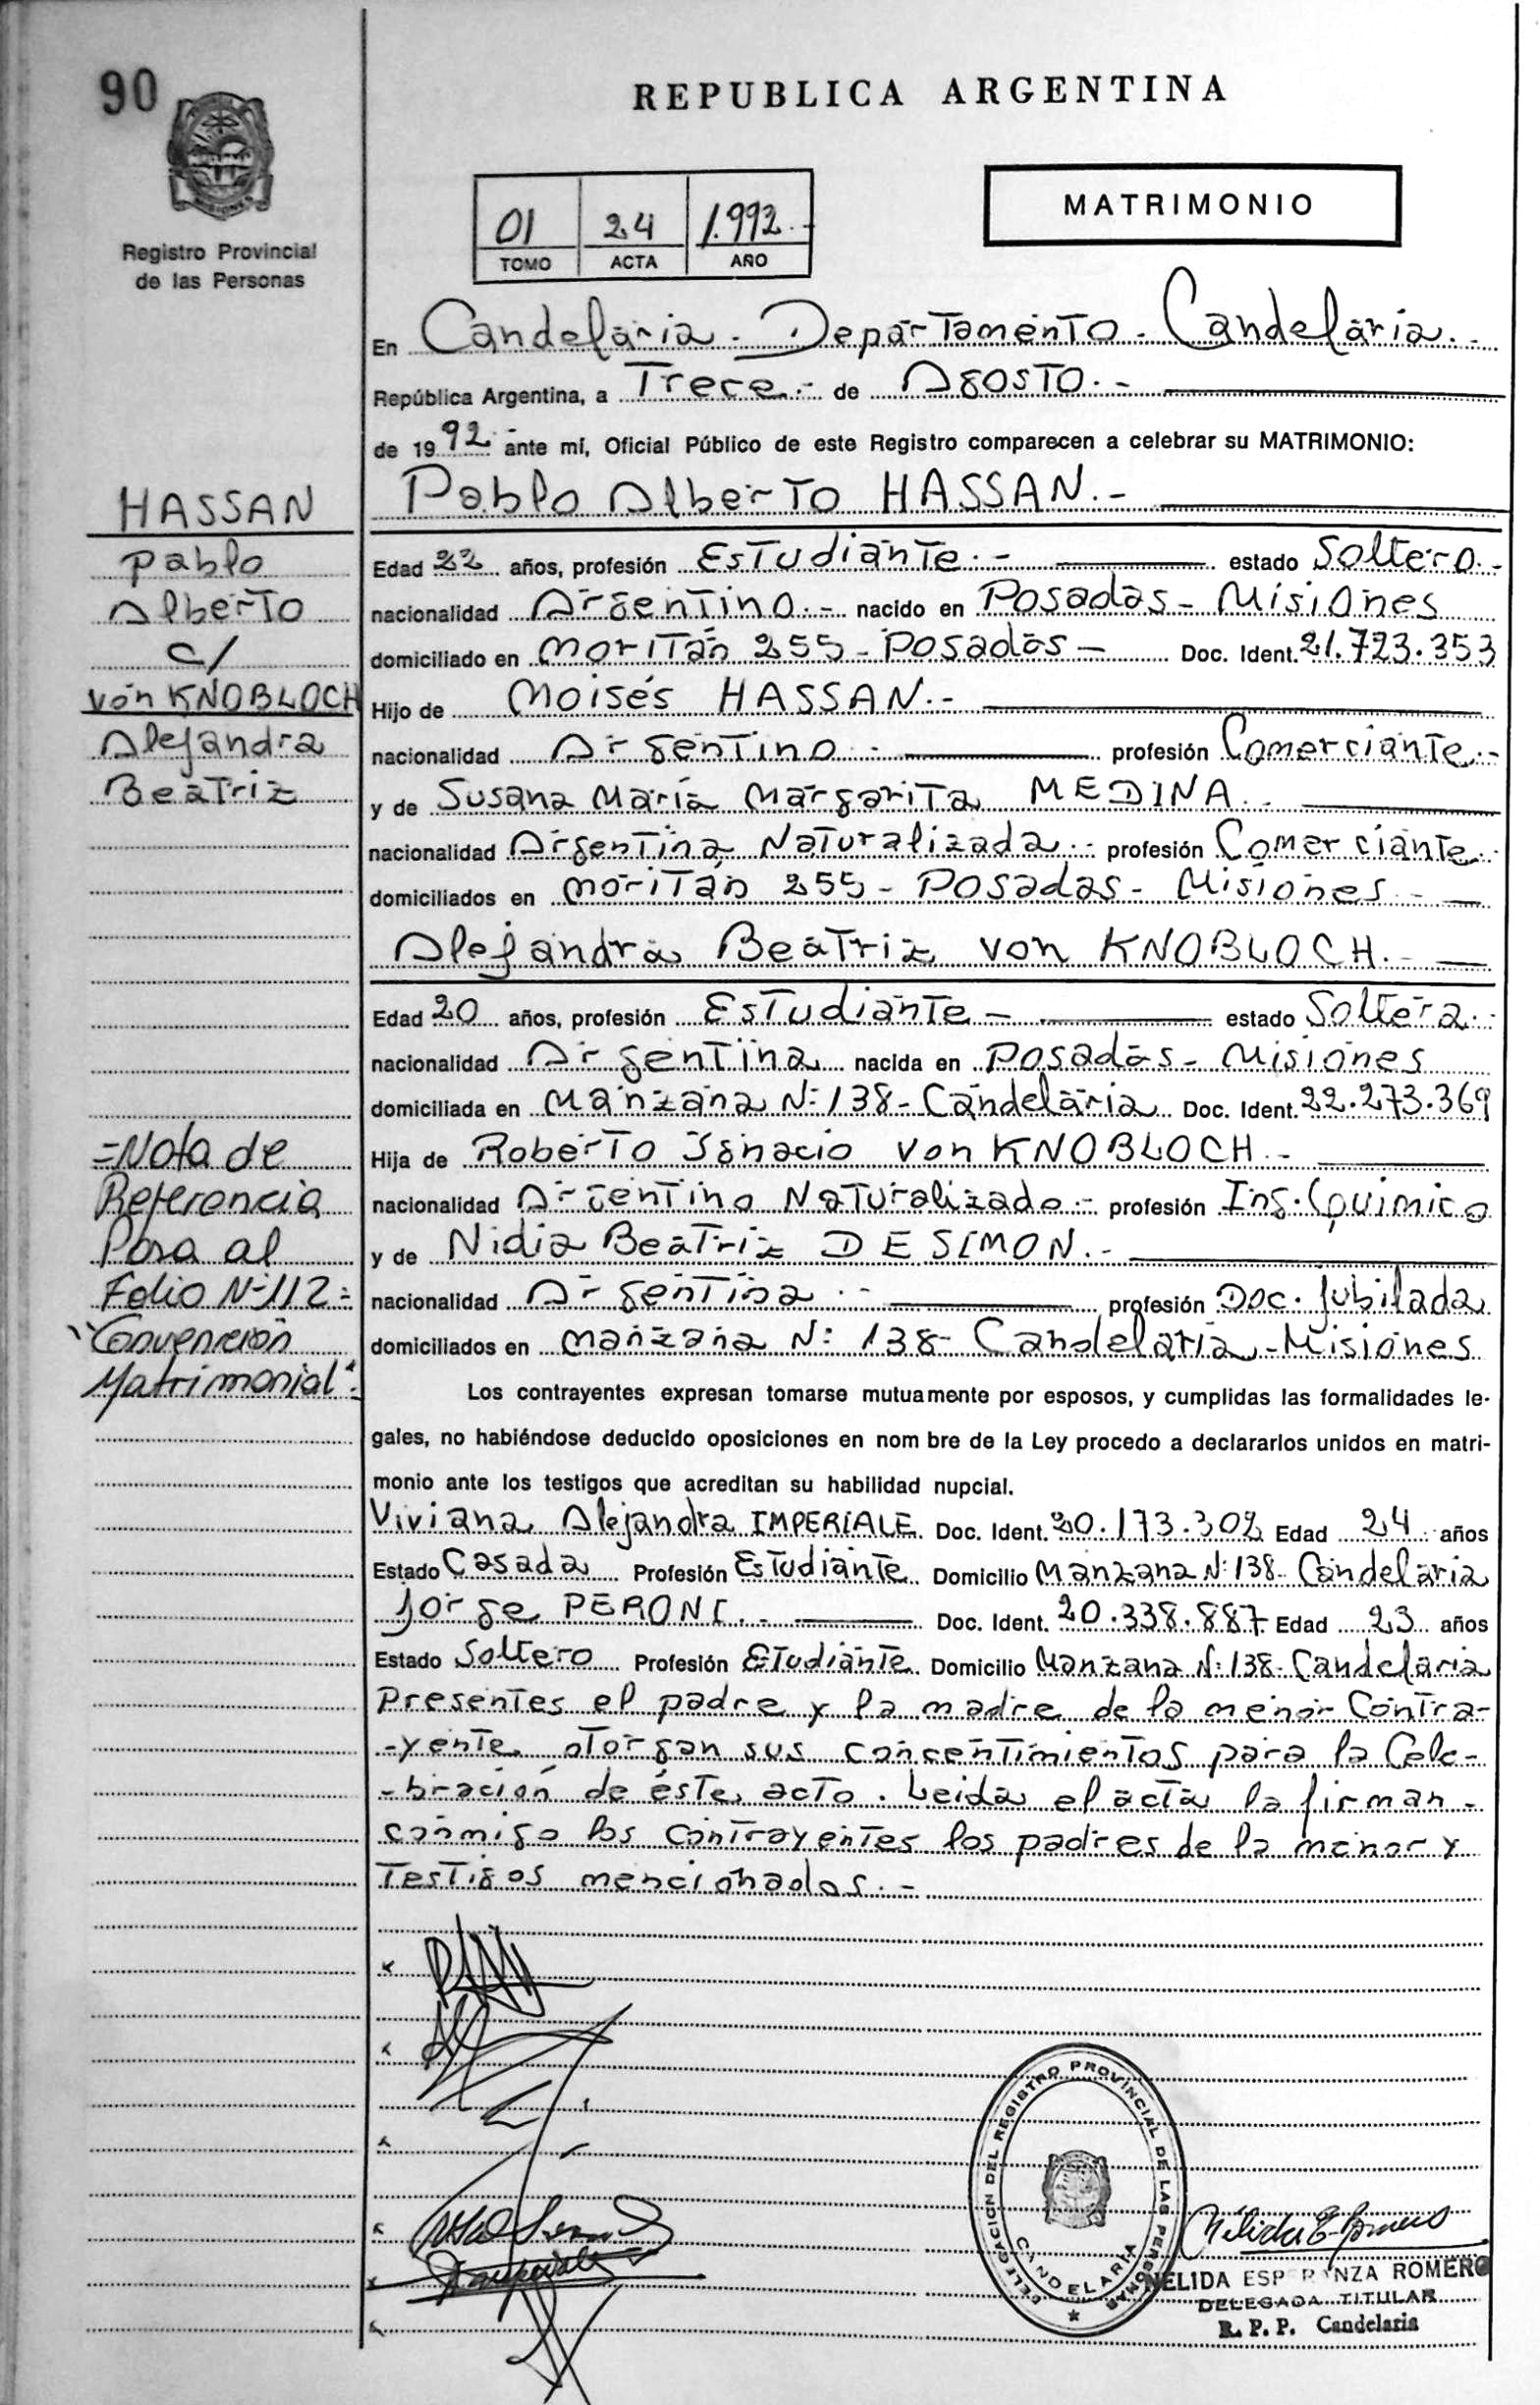 90
REPUBLICA ARGENTINA
MISIONES
Registro Provincial
de las Personas
01 24 1.992.-
TOMO ACTA AÑO
MATRIMONIO
En Candelaria - Departamento - Candelaria.-
República Argentina, a Trece.- de Agosto.-
de 1992 ante mí, Oficial Público de este Registro comparecen a celebrar su MATRIMONIO:
Pablo Alberto HASSAN.-
Edad 22 años, profesión Estudiante.- estado Soltero.-
nacionalidad Argentino.- nacido en Posadas - Misiones
domiciliado en Moritán 255 - Posadas - Doc. Ident. 21.723.353
Hijo de Moisés HASSAN.-
nacionalidad Argentino.- profesión Comerciante.-
y de Susana María Margarita MEDINA.-
nacionalidad Argentina Naturalizada.- profesión Comerciante.
domiciliados en Moritán 255 - Posadas - Misiones.-
Alejandra Beatriz von KNOBLOCH.-
Edad 20 años, profesión Estudiante - estado Soltera.-
nacionalidad Argentina nacida en Posadas - Misiones
domiciliada en Manzana Nº 138 - Candelaria Doc. Ident. 22.273.369
Hija de Roberto Ignacio von KNOBLOCH.-
nacionalidad Argentino Naturalizado.- profesión Ing. Químico
y de Nidia Beatriz DE SIMON.-
nacionalidad Argentina.- profesión Doc. Jubilada
domiciliados en Manzana Nº 138 - Candelaria - Misiones
Los contrayentes expresan tomarse mutuamente por esposos, y cumplidas las formalidades le-
gales, no habiéndose deducido oposiciones en nom bre de la Ley procedo a declararlos unidos en matri-
monio ante los testigos que acreditan su habilidad nupcial.
Viviana Alejandra IMPERIALE Doc. Ident. 20.173.302 Edad 24 años
Estado Casada Profesión Estudiante Domicilio Manzana Nº 138 - Candelaria
Jorge PERONI.- Doc. Ident. 20.338.887 Edad 23 años
Estado Soltero Profesión Etudiante Domicilio Manzana Nº 138 - Candelaria
Presentes el padre y la madre de la menor Contra-
-yente, otorgan sus concentimientos para la Cele-
-bración de éste acto. Leida el acta la firman -
conmigo los contrayentes los padres de la menor y
Testigos mencionados.-
HASSAN
Pablo
Alberto
c/
von KNOBLOCH
Alejandra
Beatriz
=Nota de
Referencia
Pasa al
Folio Nº 112=
"Convención
Matrimonial"=
DELEGACION DEL REGISTRO PROVINCIAL DE LAS PERSONAS
CANDELARIA
NELIDA ESPERANZA ROMERO
DELEGADA TITULAR
R. P. P. Candelaria